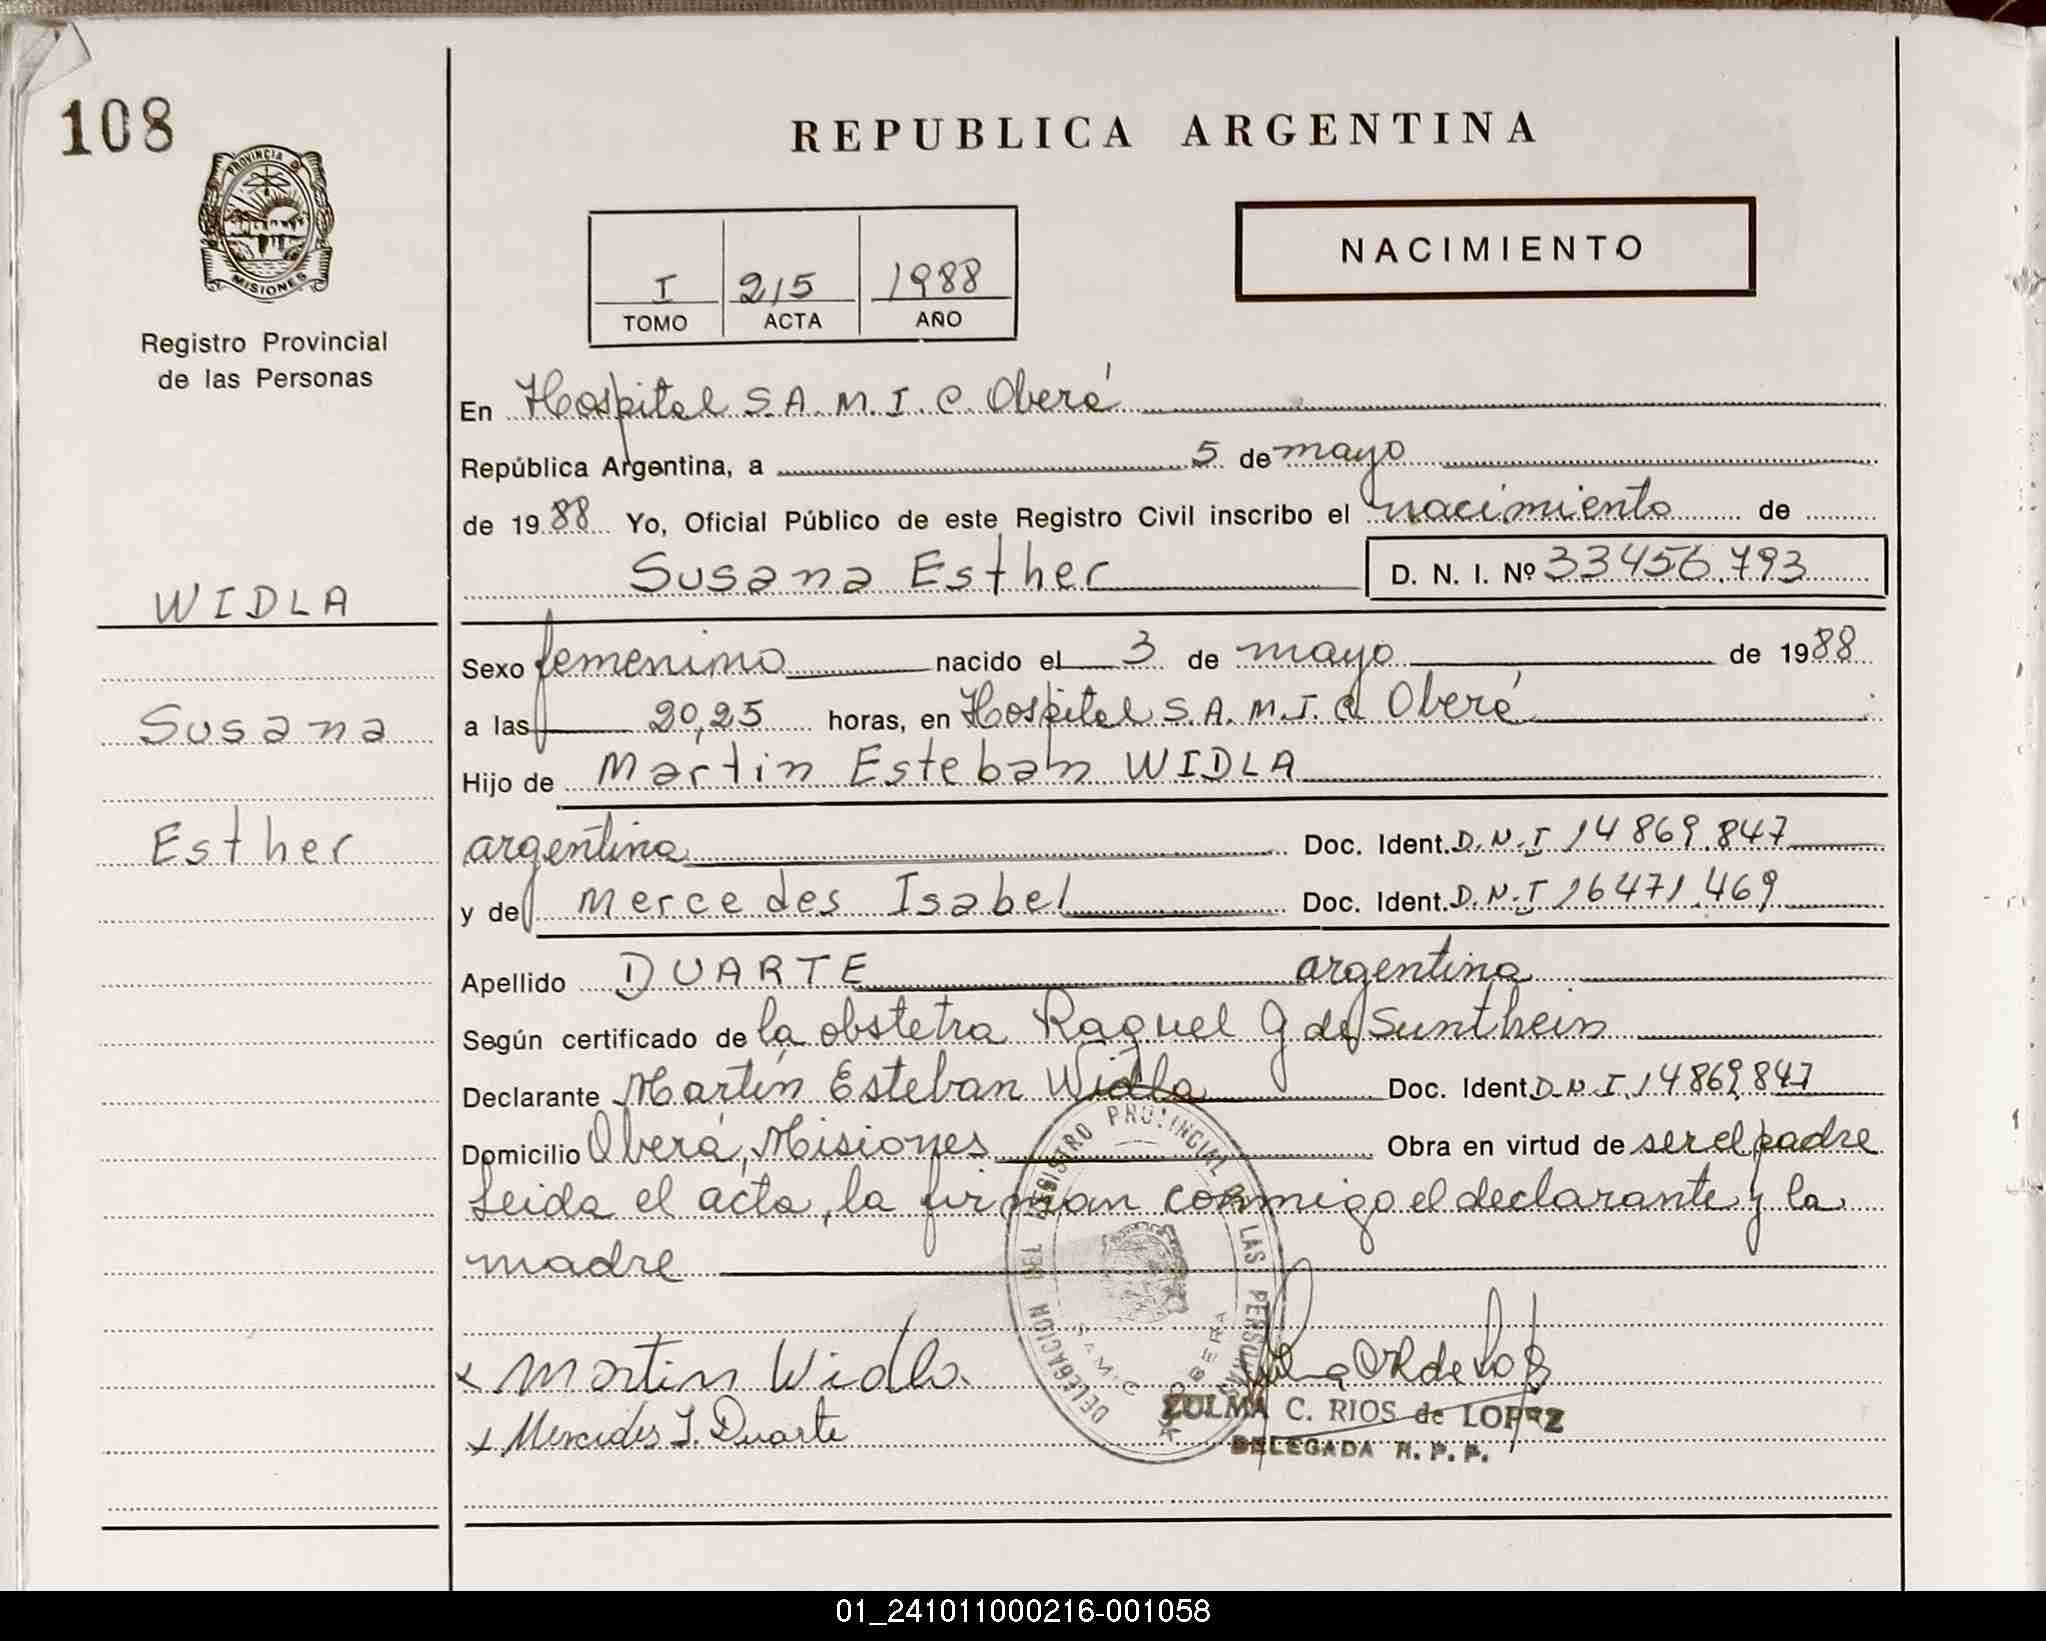 108
REPUBLICA ARGENTINA
PROVINCIA DE
MISIONES
Registro Provincial
de las Personas
I 215 1988
TOMO ACTA AÑO
NACIMIENTO
En Hospital S.A.M.I.C. Oberá
República Argentina, a 5 de mayo
de 1988 Yo, Oficial Público de este Registro Civil inscribo el nacimiento de
Susana Esther D. N. I. Nº 33456.793
WIDLA
Susana
Esther
Sexo femenino nacido el 3 de mayo de 1988
a las 20,25 horas, en Hospital S.A.M.I.C Oberá
Hijo de Martin Esteban WIDLA
argentina Doc. Ident. D.N.I 14869.847
y de Mercedes Isabel Doc. Ident. D.N.I 16471.469
Apellido DUARTE argentina
Según certificado de la obstetra Raquel G de Sunthein
Declarante Martín Esteban Widla Doc. Ident. D.N.I. 14869847
Domicilio Oberá, Misiones Obra en virtud de ser el padre
Leida el acta, la firman conmigo el declarante y la
madre
DELEGACION DEL REGISTRO PROVINCIAL DE LAS PERSONAS
S.A.M.I.C OBERA
x Martin Widla.
x Mercedes I. Duarte
ZULMA C. RIOS de LOPEZ
DELEGADA R. P. P.
01_241011000216-001058